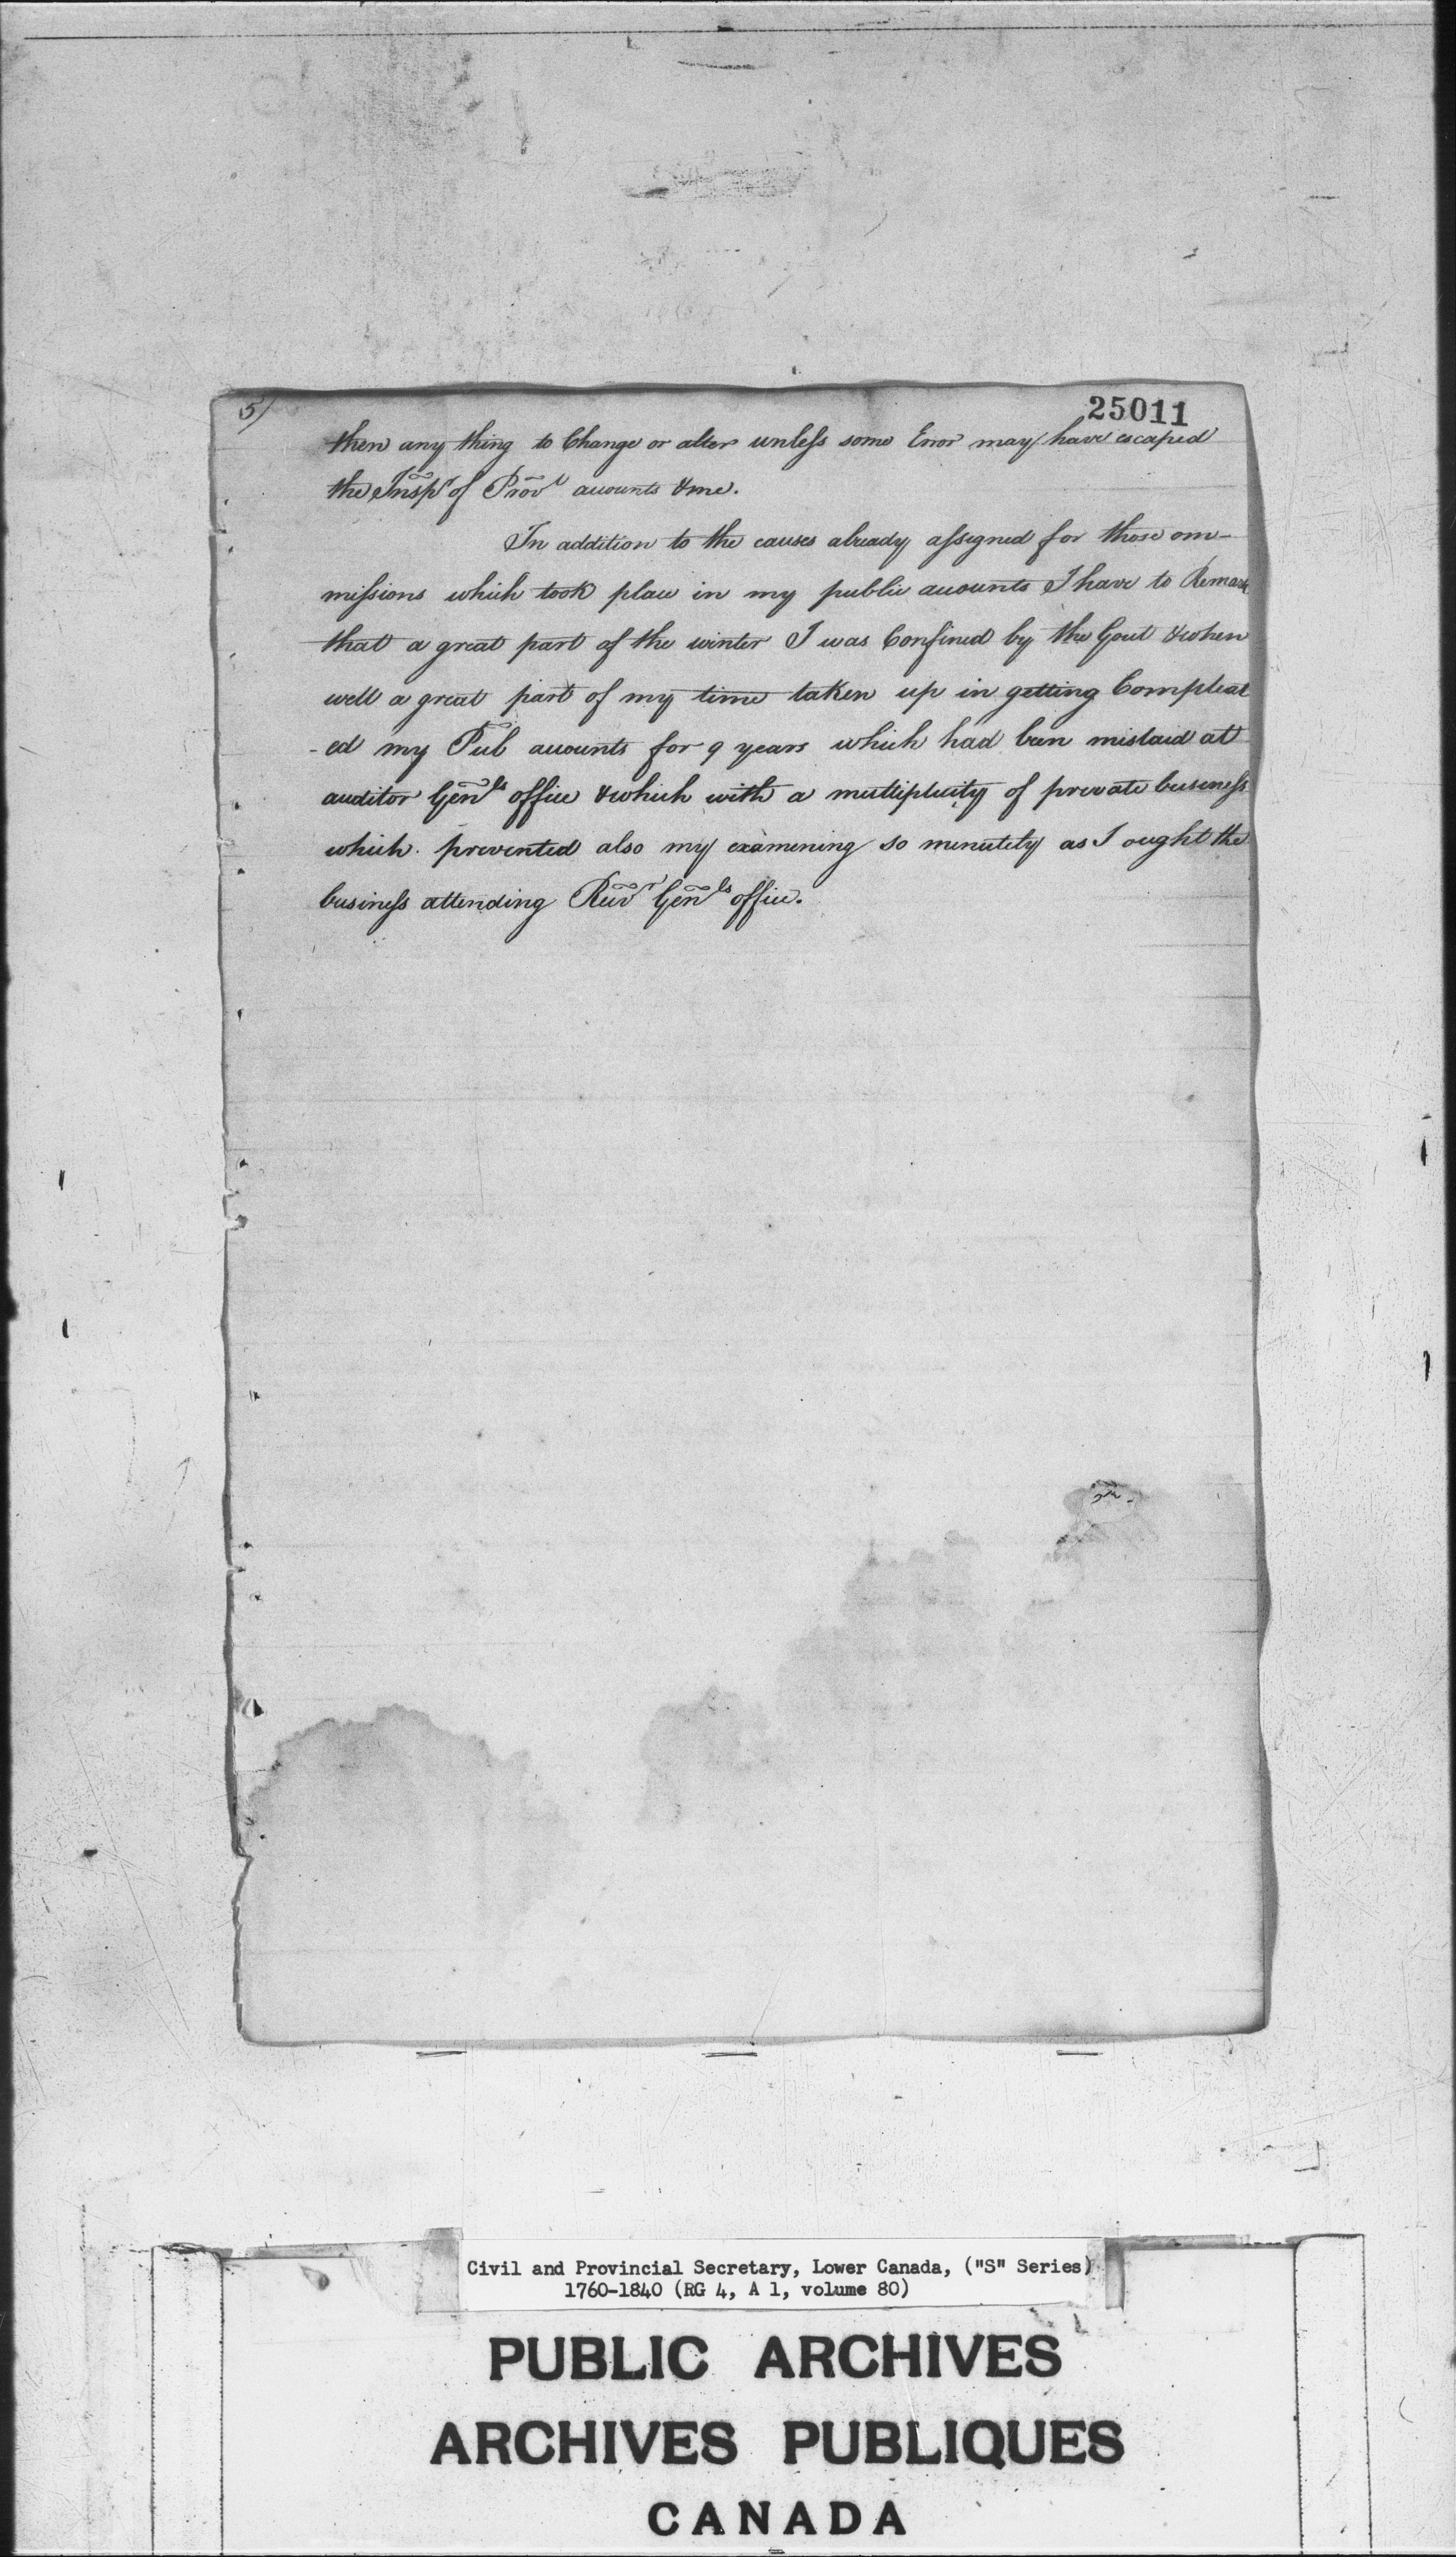 5/
25011
then any thing to Change or alter unless some Error may have escaped
the Inspr of Provl accounts & me.
In addition to the causes already assigned for those om-
missions which took place in my public accounts I have to Remark
that a great part of the winter I was Confined by the Gout & when
well a great part of my time taken up in getting Compleat
-ed my Pub accounts for 9 years which had been mislaid at
auditor Genls office & which with a multiplicity of private business
which prevented also my examining so minutely as I ought the
business attending Recr Genls office.
Civil and Provincial Secretary, Lower Canada, ("S" Series)
1760-1840 (RG 4, A 1, volume 80)
PUBLIC ARCHIVES
ARCHIVES PUBLIQUES
CANADA